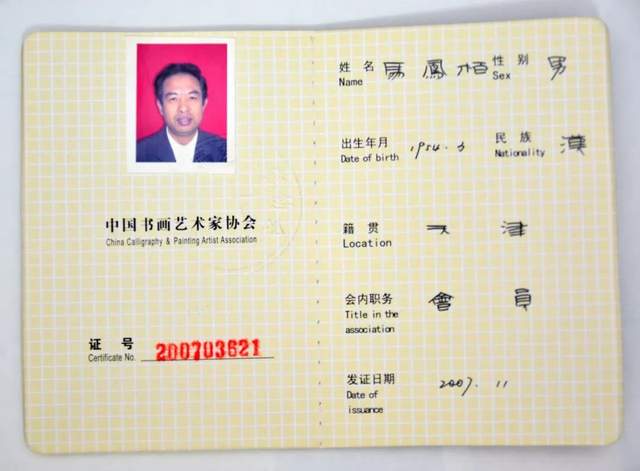 中国书画艺术家协会
China Calligraphy & Painting Artist Association
证 号
Certificate No. 200703621
姓 名 馬 鳳 栢 性 别 男
Name Sex
出生年月 1954.3 民 族 漢
Date of birth Nationality
籍 贯 天 津
Location
会内职务 會 員
Title in the
association
发证日期 2007.11
Date of
issuance